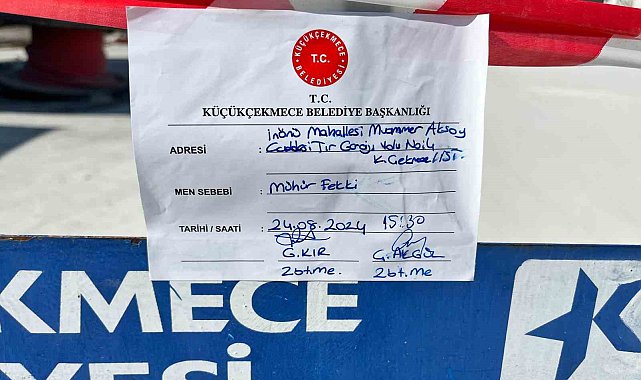 KÜÇÜKÇEKMECE
T.C.
BELEDİYESİ
T.C.
KÜÇÜKÇEKMECE BELEDİYE BAŞKANLIĞI
İnönü Mahallesi Muammer Aksoy
ADRESİ : Caddesi Tır Garajı Yolu No:4
K.Çekmece / İST.
MEN SEBEBİ : Mühür Fekki
TARİHİ / SAATİ : 24.08.2024 15:30
G.KIR G.AKGÜL
Zbt.me. Zbt.me
KMECE
YESİ